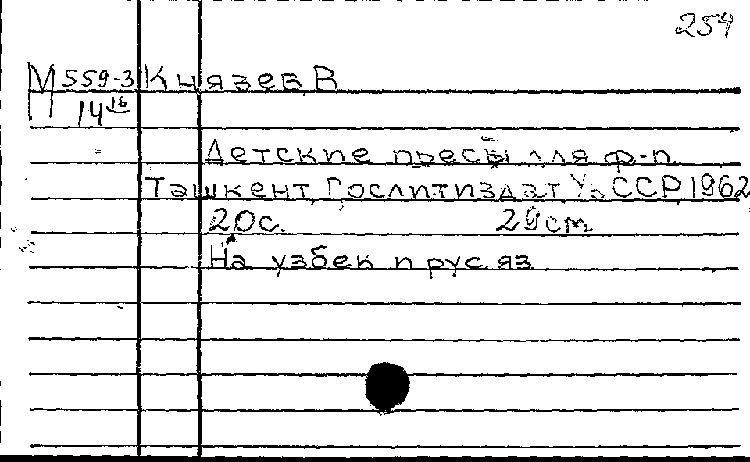 254
М 559-3 Князев В
14 16
Детские пьесы для ф-п.
Ташкент, Гослитиздат Уз ССР 1962
20с. 29см
На узбек и рус. яз